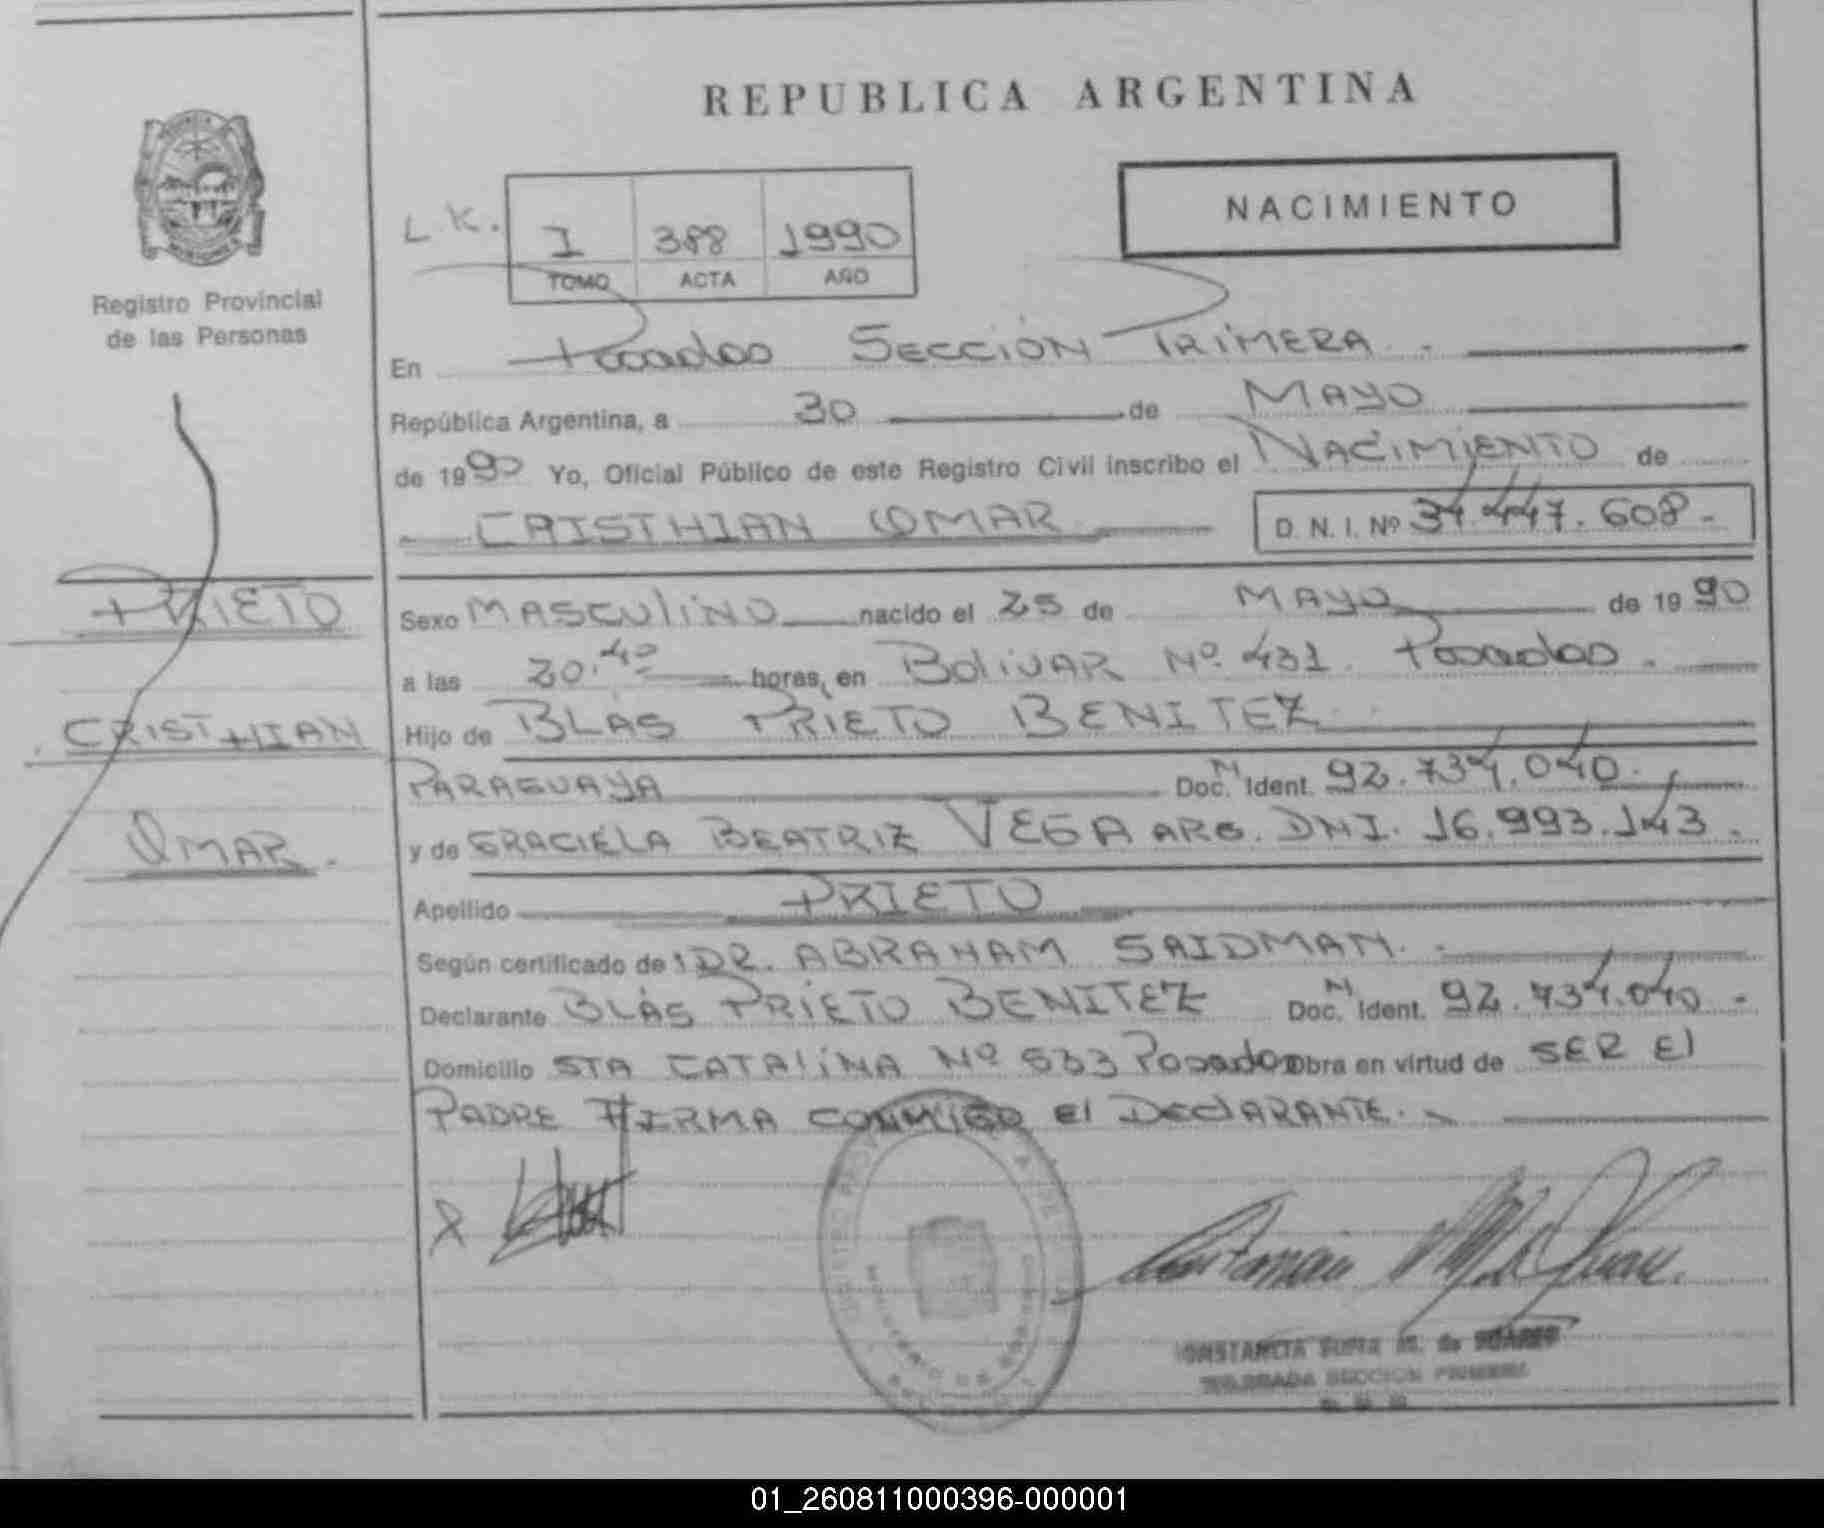 REPUBLICA ARGENTINA
NACIMIENTO
L.K.
I 388 1990
TOMO ACTA AÑO
Registro Provincial
de las Personas
En Posadas SECCIÓN PRIMERA.
República Argentina, a 30 de MAYO
de 1990 Yo, Oficial Público de este Registro Civil inscribo el NACIMIENTO de
CRISTHIAN OMAR D.N.I. Nº 34.447.608-
PRIETO
CRISTHIAN
OMAR.
Sexo MASCULINO nacido el 25 de MAYO de 1990
a las 20.40 horas, en BOLIVAR Nº 431. Posadas.
Hijo de BLÁS PRIETO BENITEZ
PARAGUAYA Doc. N Ident. 92.734.040.
y de GRACIELA BEATRIZ VEGA ARG. DNI. 16.993.143.
Apellido PRIETO
Según certificado de: DR. ABRAHAM SAIDMAN.
Declarante BLÁS PRIETO BENITEZ Doc. N Ident. 92.734.040-
Domicilio STA CATALINA Nº 533 Posadas obra en virtud de SER El
PADRE FIRMA CONMIGO El DEClARANTE.
DELEGADA SECCION PRIMERA
01_260811000396-000001